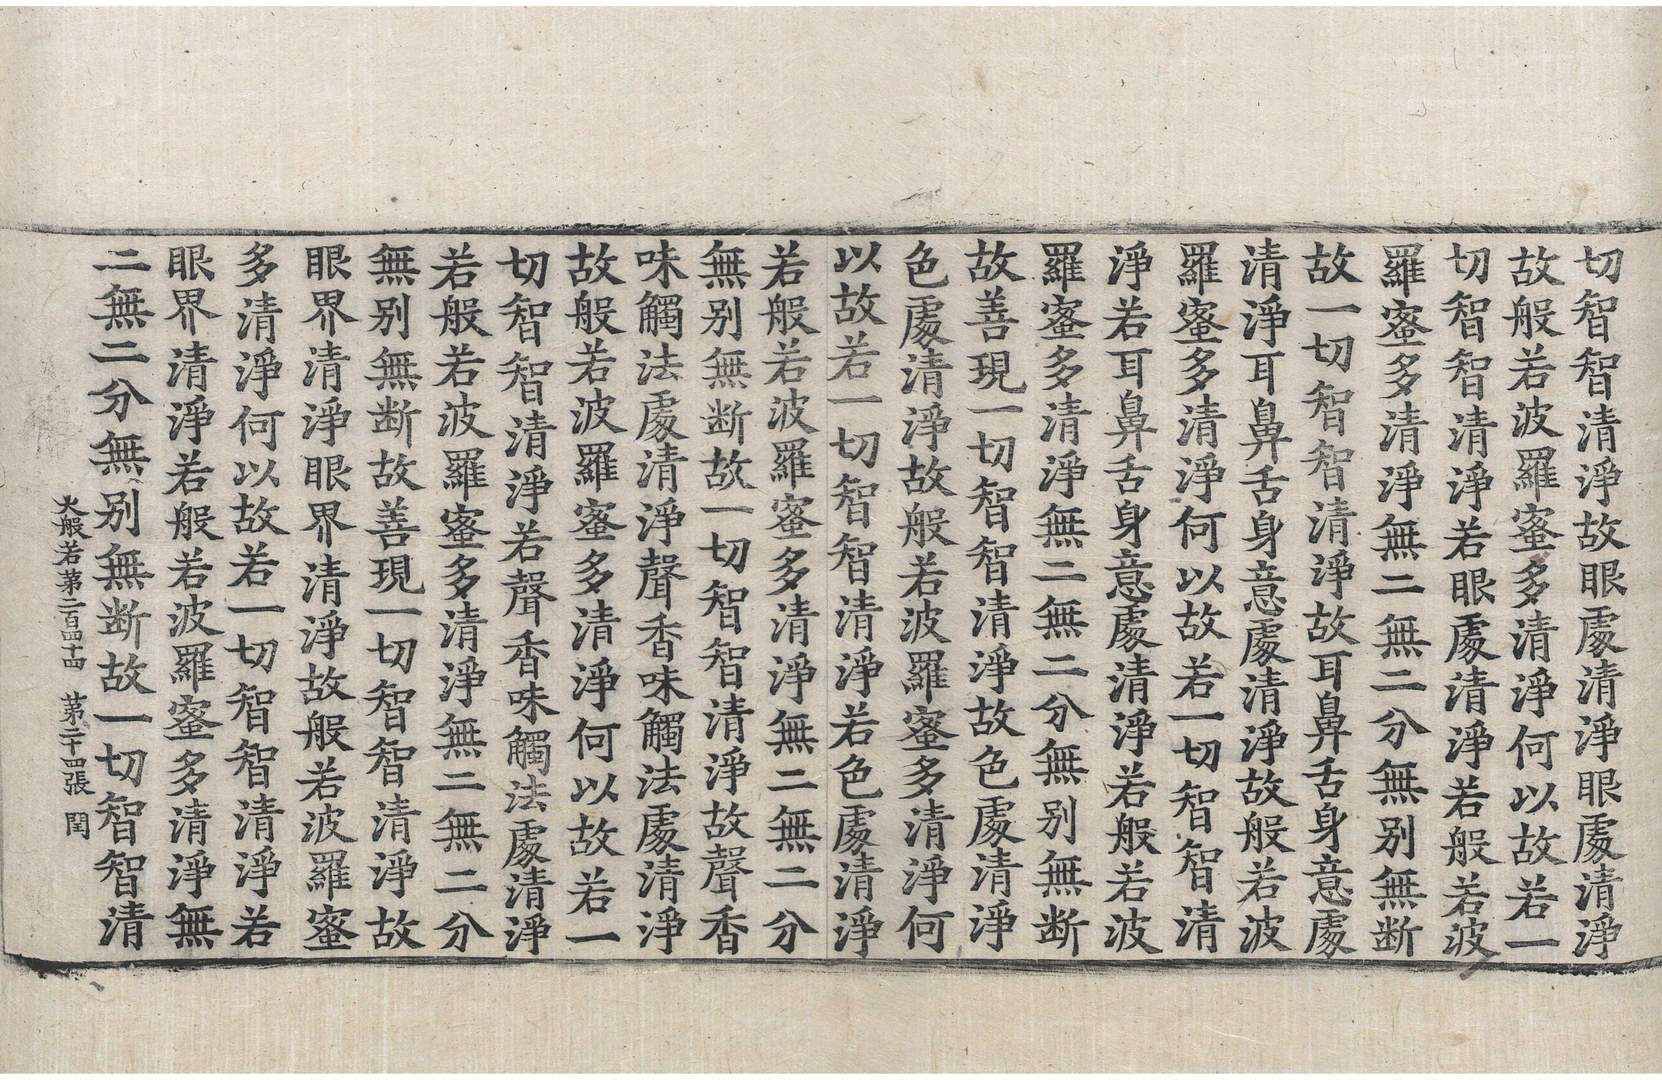 切智智清淨故眼處清淨眼處清淨
故般若波羅蜜多清淨何以故若一
切智智清淨若眼處清淨若般若波
羅蜜多清淨無二無二分無別無断
故一切智智清淨故耳鼻舌身意處
清淨耳鼻舌身意處清淨故般若波
羅蜜多清淨何以故若一切智智清
淨若耳鼻舌身意處清淨若般若波
羅蜜多清淨無二無二分無別無断
故善現一切智智清淨故色處清淨
色處清淨故般若波羅蜜多清淨何
以故若一切智智清淨若色處清淨
若般若波羅蜜多清淨無二無二分
無別無断故一切智智清淨故聲香
味觸法處清淨聲香味觸法處清淨
故般若波羅蜜多清淨何以故若一
切智智清淨若聲香味觸法處清淨
若般若波羅蜜多清淨無二無二分
無別無断故善現一切智智清淨故
眼界清淨眼界清淨故般若波羅蜜
多清淨何以故若一切智智清淨若
眼界清淨若般若波羅蜜多清淨無
二無二分無別無断故一切智智清
大般若第二百四十四 第二十四張 閏